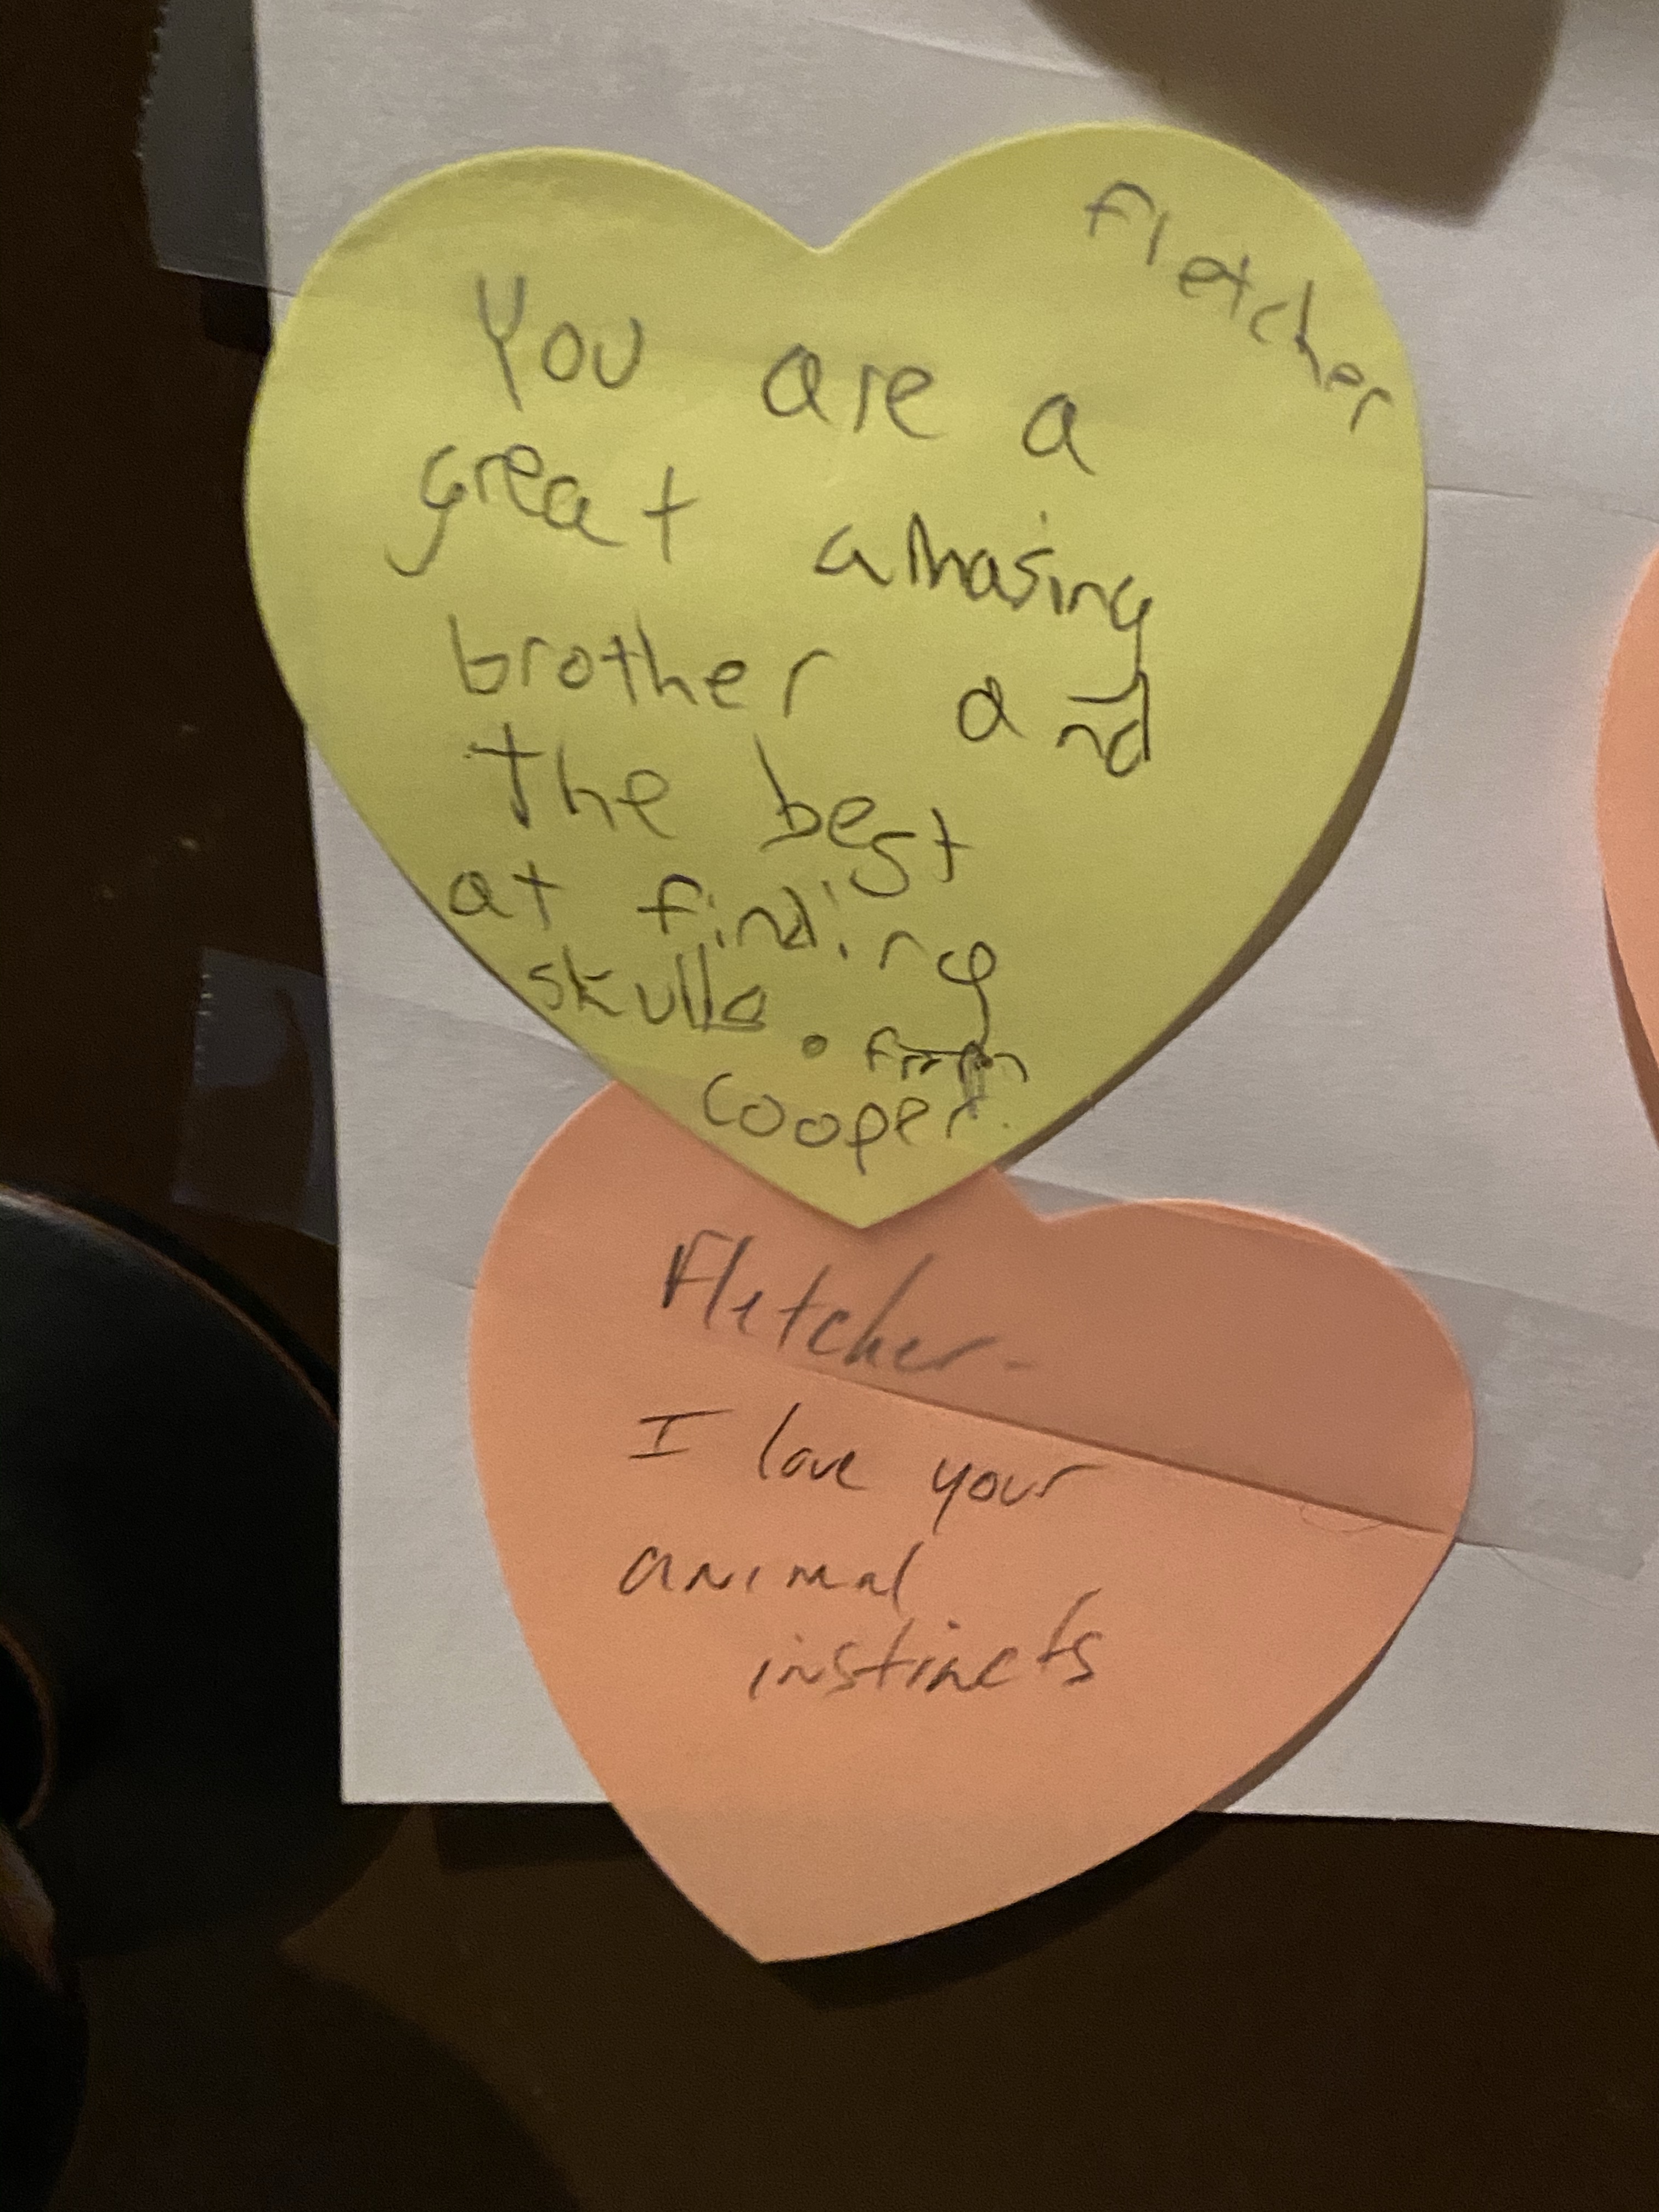 Fletcher
You are a
great amasing
brother and
the best
at finding
skulls. from
cooper.
Fletcher-
I love your
animal
instincts